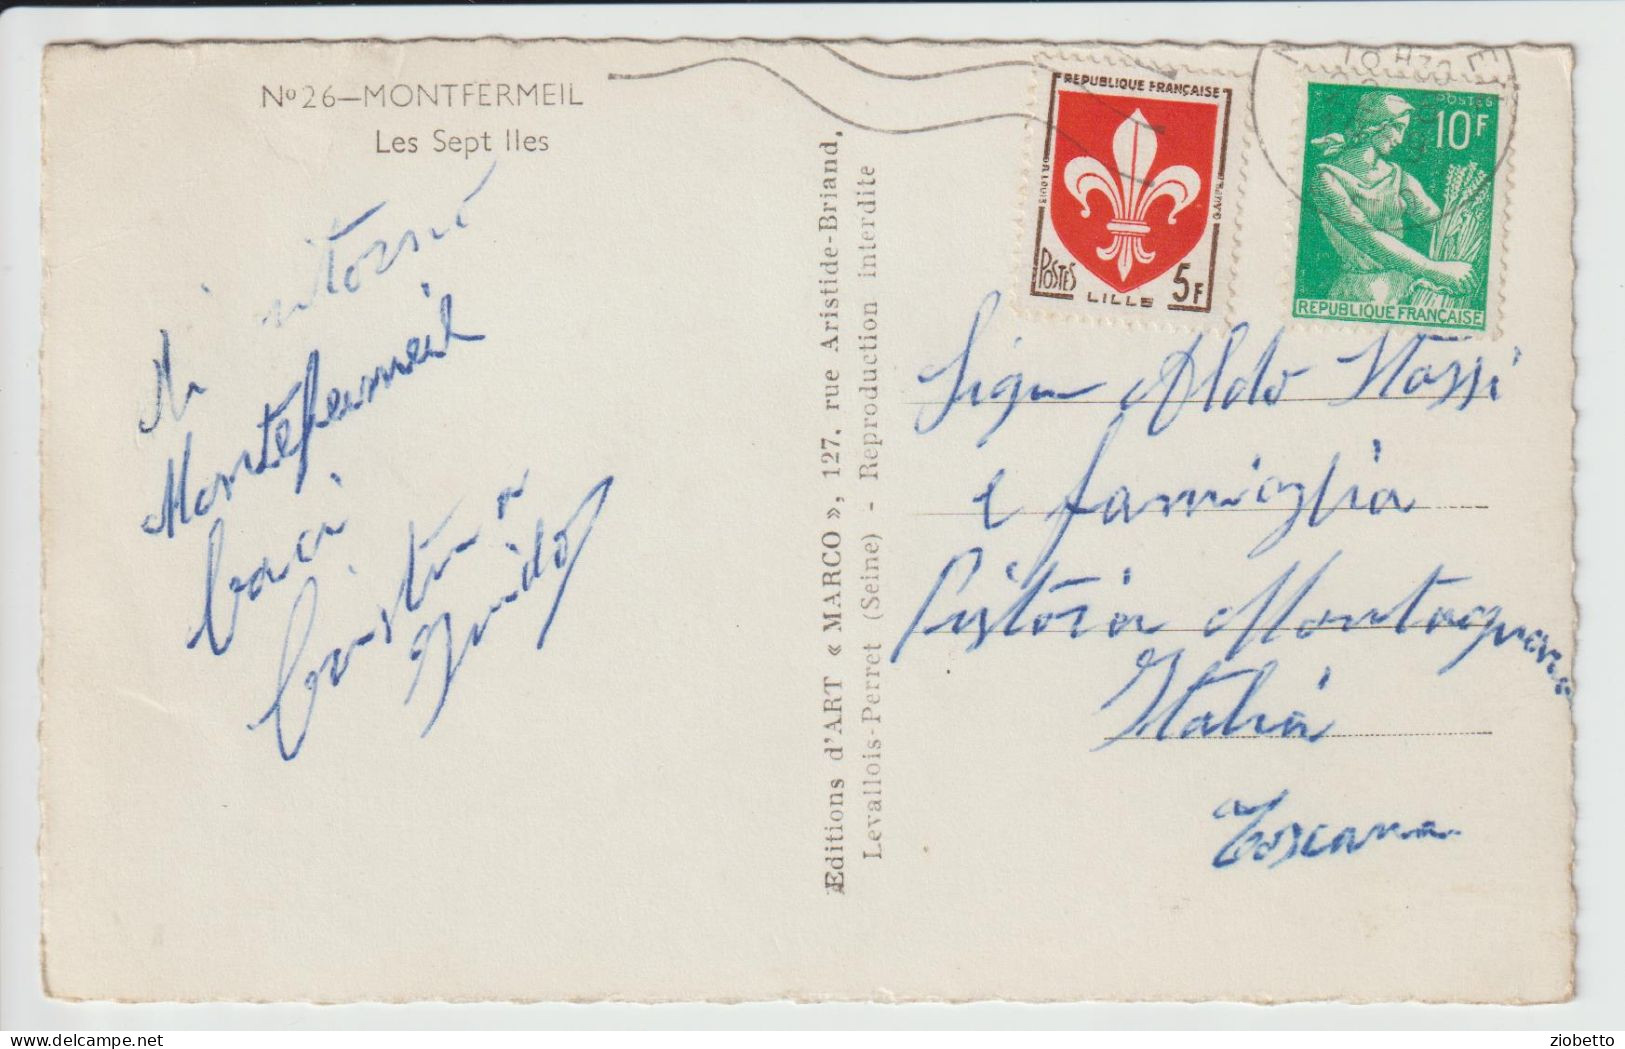 No 26—MONTFERMEIL
Les Sept Iles
ritorno
Montefermeil
baci
Guido
Editions d'ART « MARCO », 127, rue Aristide-Briand,
Levallois-Perret (Seine) - Reproduction interdite
REPUBLIQUE FRANÇAISE
POSTES
LILLE
5F
POSTES
10F
REPUBLIQUE FRANÇAISE
Sign Aldo
e famiglia
Pistoia Montagnana
Italia
Toscana
delcampe.net
ziobetto